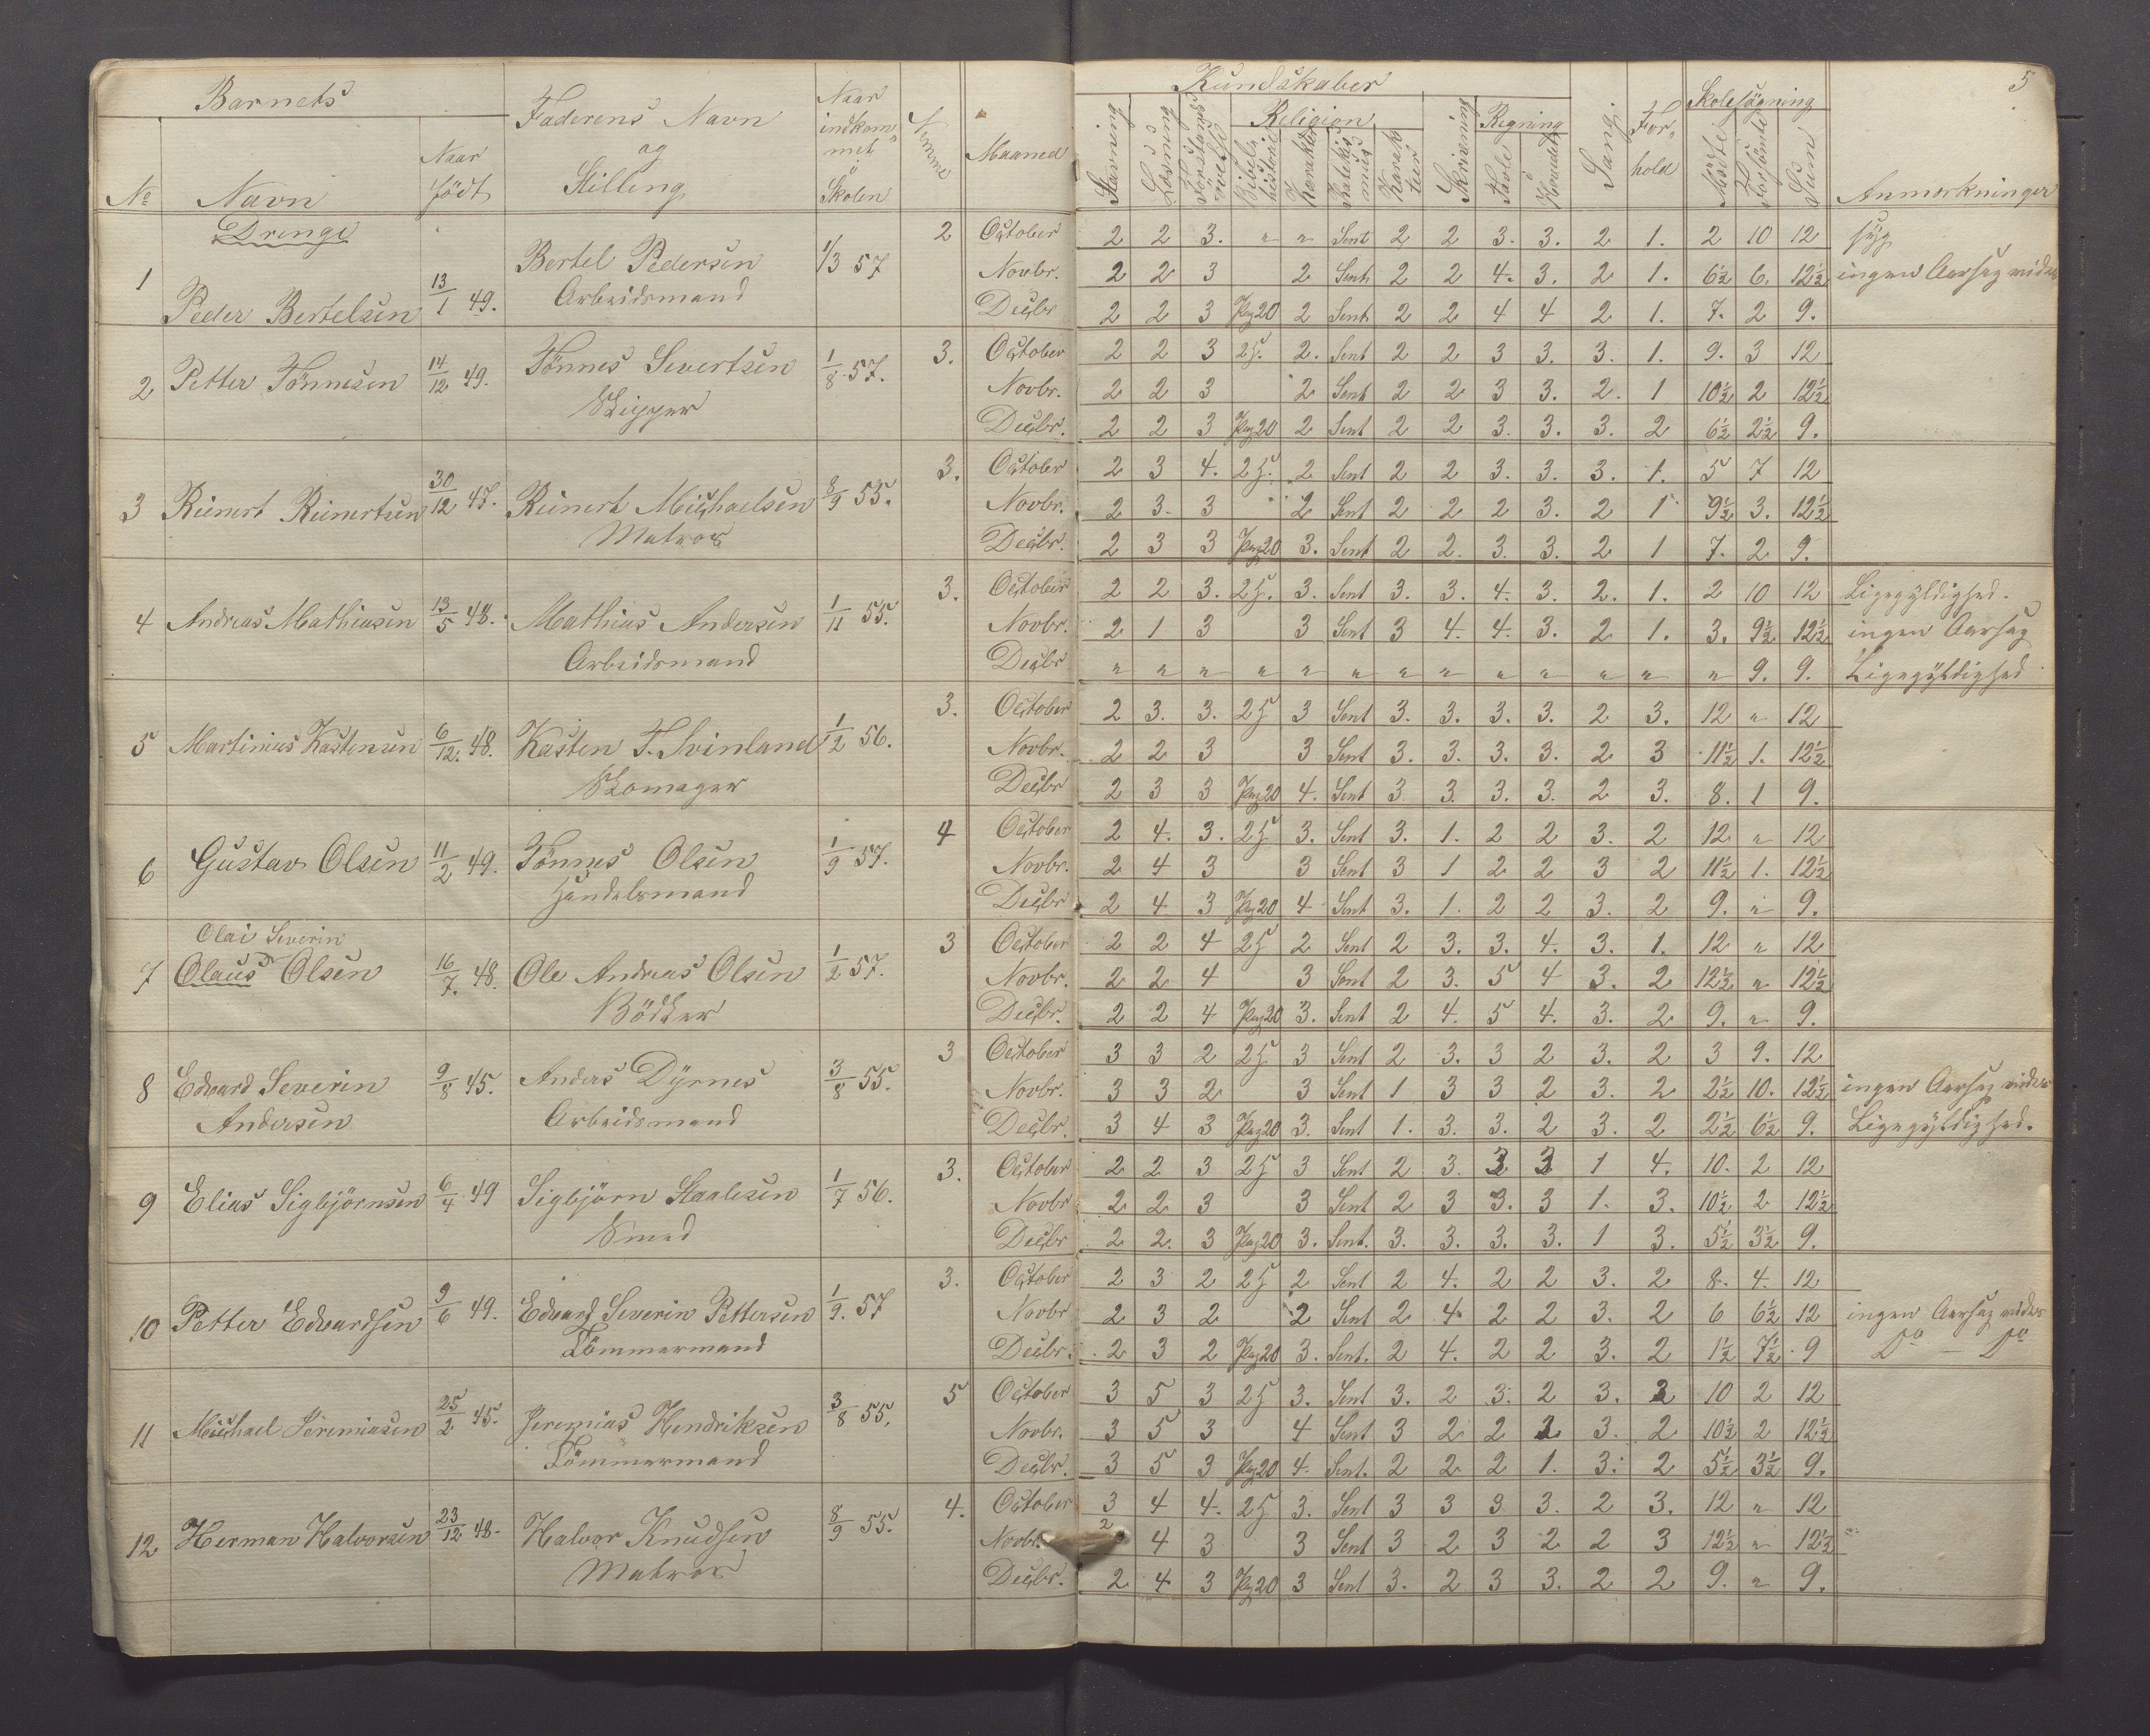 5
Barnets
Faderens Navn
og
Stilling
Naar
indkom-
met i
Skolen
Nemme
Maaned
Kundskaber
Religion
Regning
Sang
For-
hold
Skolesøgning
Anmærkninger
№ Navn
Naar
født
Stavning Læsning Forstands øvelse Bibelhistorie Karakter Katekismus Karakter Skrivning Tavle Hovedet Mødte Forsömte Sum
Drenge
1 Peder Bertelsen 13/1 49. Bertel Pedersen 1/3 57 2 October 2 2 3. " " Sent 2 2 3. 3. 2 1. 2 10 12 syg
Arbeidsmand Novbr. 2 2 3 2 Sent 2 2 4. 3. 2 1. 6½ 6. 12½ ingen Aarsag vides
Decbr 2 2 3 Pag 20 2 Sent 2 2 4 4 2 1. 7. 2 9.
2 Petter Tönnesen 14/12 49. Tönnes Severtsen 1/8 57. 3. October 2 2 3 25. 2. Sent 2 2 3 3. 3. 1. 9. 3 12
Skipper Novbr. 2 2 3 2 Sent 2 2 3 3. 2. 1 10½ 2 12½
Decbr. 2 2 3 Pag 20 2 Sent 2 2 3. 3. 3. 2 6½ 2½ 9.
3 Reinert Reinertsen 30/12 47. Reinert Michaelsen 8/9 55. 3. October 2 3 4. 25. 2 Sent 2 2 3. 3. 3. 1. 5 7 12
Matros Novbr. 2 3. 3 2 Sent 2 2 2 3. 2 1 9½ 3. 12½
Decbr. 2 3 3 Pag 20 3. Sent 2 2. 3. 3. 2 1 7. 2 9.
4 Andreas Mathiasen 13/5 48. Mathias Andersen 1/11 55. 3. October 2 2 3. 25. 3. Sent 3. 3. 4. 3. 2. 1. 2 10 12 Ligegyldighed.
Arbeidsmand Novbr. 2 1 3 3 Sent 3 4. 4. 3. 2 1. 3. 9½ 12½ ingen Aarsag
Decbr " " " " " " " " " " " " " 9. 9. Ligegyldighed
5 Martinius Kastensen 6/12. 48. Kasten T. Svinland 1/2 56. 3. October 2 3. 3. 25 3 Sent 3. 3. 3. 3. 2 3. 12 " 12
Skomager Novbr. 2 2 3 3 Sent 3. 3. 3. 3. 2 3 11½ 1. 12½
Decbr 2 3 3 Pag 20 4. Sent 3 3. 3. 3. 2 3. 8. 1 9.
6 Gustav Olsen 11/2 49. Tönnes Olsen 1/9 57. 4 October 2 4. 3. 25 3. Sent 3. 1. 2 2 3. 2 12 " 12
Handelsmand Novbr. 2 4 3 3 Sent 3 1 2 2 3 2 11½ 1. 12½
Decbr 2 4 3 Pag 20 4 Sent 3. 1. 2 2 3. 2 9. " 9.
Olai Severin
7 Olaus Olsen 16/7. 48. Ole Andreas Olsen 1/2 57. 3 October 2 2 4 25 2 Sent 2 3. 3. 4. 3. 1. 12 " 12
Bödker Novbr. 2 2 4 3 Sent 2 3. 5 4 3. 2 12½ " 12½
Decbr. 2 2 4 Pag 20 3. Sent 2 4. 5 4. 3. 2 9. " 9.
8 Edvard Severin 9/8 45. Anders Dyrnes 3/8 55. 3 October 3 3 2 25 3 Sent 2 3. 3 2 3. 2 3 9. 12
Andersen Arbeidsmand Novbr. 3 3 2 3 Sent 1 3 3 2 3. 2 2½ 10. 12½ ingen Aarsag vides
Decbr. 3 4 3 Pag 20 3. Sent 1. 3. 3. 2 3. 2 2½ 6½ 9. Ligegyldighed.
9 Elias Sigbjörnsen 6/4 49 Sigbjörn Staalesen 1/7 56. 3. October 2 2 3 25 3 Sent 2 3. 3 3 1 4. 10. 2 12
Smed Novbr 2 2 3 3 Sent 2 3 3. 3 1. 3. 10½ 2 12½
Decbr 2 2. 3 Pag 20 3. Sent. 3. 3. 3. 3. 1 3. 5½ 3½ 9.
10 Petter Edvardsen 9/6 49. Edvard Severin Pettersen 1/9. 57 3. October 2 3 2 25 2 Sent 2 4. 2 2 3. 2 8. 4. 12
Tömmermand Novbr 2 3 2 2 Sent 2 4 2 2 3. 2 6 6½ 12 ingen Aarsag vides
Decbr. 2 3 2 Pag 20 3. Sent. 2 4. 2 2 3. 2 1½ 7½ 9 Do — Do
11 Michael Jeremiasen 25/2 45. Jeremias Hendriksen 3/8 55. 5 October 3 5 3 25 3. Sent 3. 2 3. 2 3. 2 10 2 12
Tömmermand Novbr. 3 5 3 4 Sent 3 2 2 2 3. 2 10½ 2 12½
Decbr. 3 5 3 Pag 20 4. Sent. 2 2 2 1. 3. 2 5½ 3½ 9.
12 Herman Halvorsen 23/12 48. Halvor Knudsen 8/9 55. 4. October 3 4 4. 25 3. Sent 3 3 3 3. 2 3. 12 " 12
Matros Novbr. 2 4 3 3 Sent 3 2 3 2 2 3 12½ " 12½
Decbr. 2 4 3 Pag 20 3 Sent 3. 2 3 3. 2 2 9. " 9.